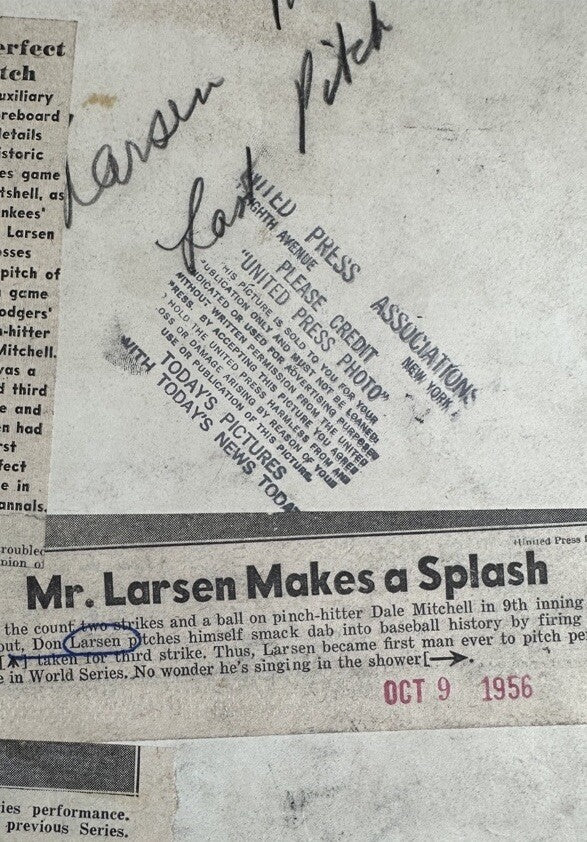 Larsen
Last Pitch
erfect
tch
uxiliary
reboard
details
istoric
es game
tshell, as
nkees'
Larsen
sses
pitch of
game
odgers'
h-hitter
Mitchell.
was a
d third
e and
n had
rst
fect
e in
annals.
UNITED PRESS ASSOCIATIONS
EIGHTH AVENUE NEW YORK
PLEASE CREDIT
"UNITED PRESS PHOTO"
THIS PICTURE IS SOLD TO YOU FOR YOUR
PUBLICATION ONLY AND MUST NOT BE LOANED,
SYNDICATED OR USED FOR ADVERTISING PURPOSES
WITHOUT WRITTEN PERMISSION FROM THE UNITED
PRESS. BY ACCEPTING THIS PICTURE YOU AGREE
TO HOLD THE UNITED PRESS HARMLESS FROM ANY
LOSS OR DAMAGE ARISING BY REASON OF YOUR
USE OR PUBLICATION OF THIS PICTURE.
TODAY'S PICTURES
WITH TODAY'S NEWS TODAY
roubled
nion of
(United Press
Mr. Larsen Makes a Splash
the count two strikes and a ball on pinch-hitter Dale Mitchell in 9th inning
out, Don Larsen pitches himself smack dab into baseball history by firing
taken for third strike. Thus, Larsen became first man ever to pitch per
e in World Series. No wonder he's singing in the shower[→].
OCT 9 1956
ies performance.
previous Series.